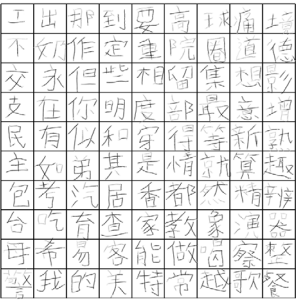 工 出 那 到 要 高 球 痛 墙
不 奶 作 定 重 院 圈 道 德
交 永 但 些 相 留 集 想 影
支 在 你 明 度 部 最 意 增
民 有 似 和 穿 得 等 新 熟
主 如 弟 其 是 情 就 算 趣
包 考 汽 居 香 都 然 精 辨
台 吃 育 查 家 教 象 演 器
母 希 易 客 能 做 唱 察 整
警 我 的 美 特 常 越 歌 餐